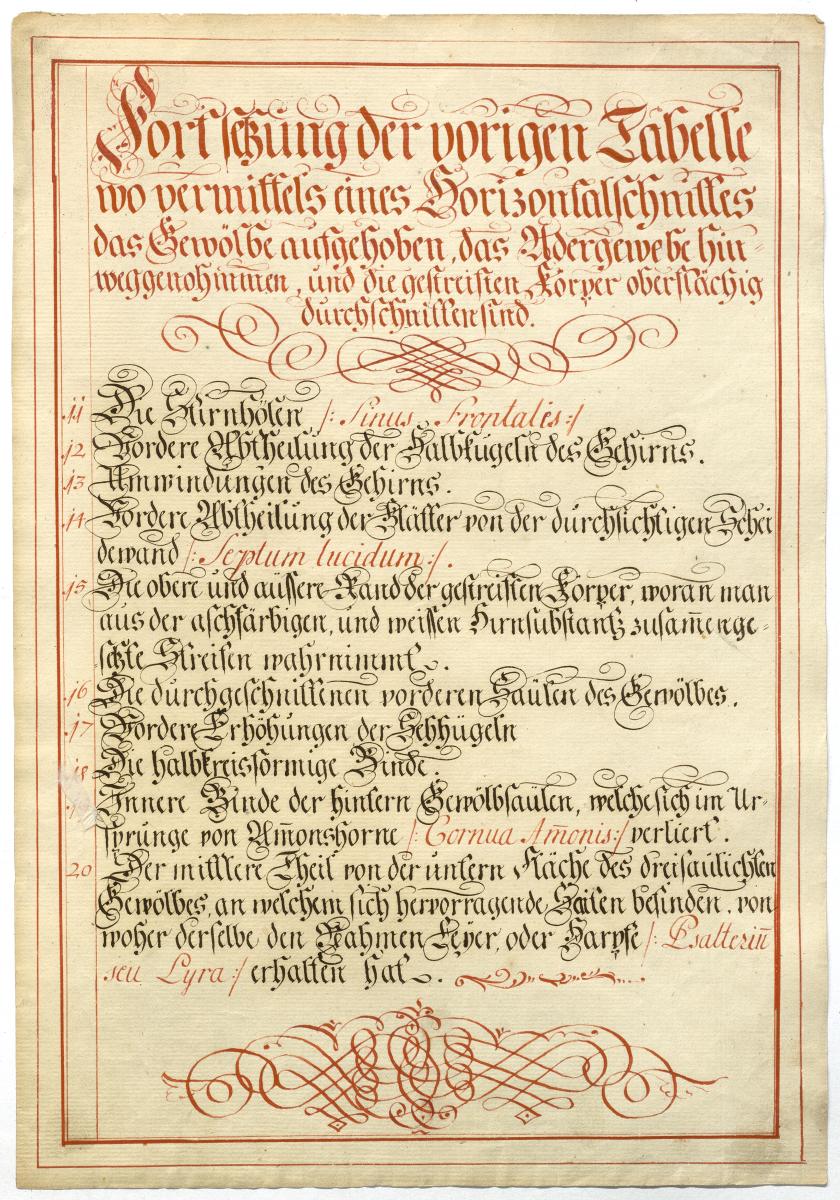 Fortsetzung der vorigen Tabelle
wo vermittels eines Horizontalschnittes
das Gewölbe aufgehoben, das Adergewebe hin=
weggenohmmen, und die gestreiften Körper oberflächig
durchschnitten sind.
11 Die Stirnhölen /: Sinus Frontalis :/
12 Vordere Abtheilung der Halbkugeln des Gehirns.
13 Umwindungen des Gehirns.
14 Vordere Abtheilung der Blätter von der durchsichtigen Schei
dewand /: Septum lucidum :/.
15 Die obere und äussere Rand der gestreiften Körper, woran man
aus der aschfärbigen, und weissen Hirnsubstantz zusam̅enge=
setzte Streifen wahrnimmt.
16 Die durchgeschnittenen vorderen Säulen des Gewölbes.
17 Vordere Erhöhungen der Sehhügeln
18 Die halbkreisförmige Binde.
Innere Binde der hintern Gewölbsäulen, welche sich im Ur=
sprunge von Am̅onshorne /: Cornua Am̅onis :/ verliert.
20 Der mittlere Theil von der untern Fläche des dreisäulichten
Gewölbes, an welchem sich hervorragende Saiten befinden, von
woher derselbe den Nahmen Leyer, oder Harpfe /: Psalteriu̅
seu Lyra :/ erhalten hat.